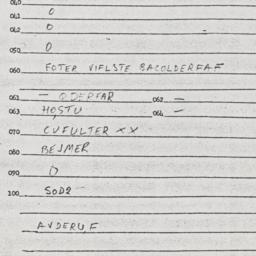 040
041 0
042 0
050 0
060 FOTER VIFLSTE BACOLDERFAF
061 - ODERFAR 062 -
063 HOSTU 064 -
070 CVFULTER XX
080 BEJMER
090 0
100 SOD2
AVDERUF